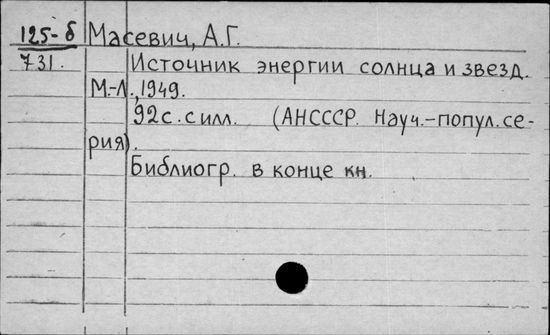 125-б Масевич, А.Г.
731. Источник энергии солнца и звезд.
М.-Л., 1949.
92с. с илл. (АНСССР. Науч.-попул.се-
рия).
Библиогр. в конце кн.